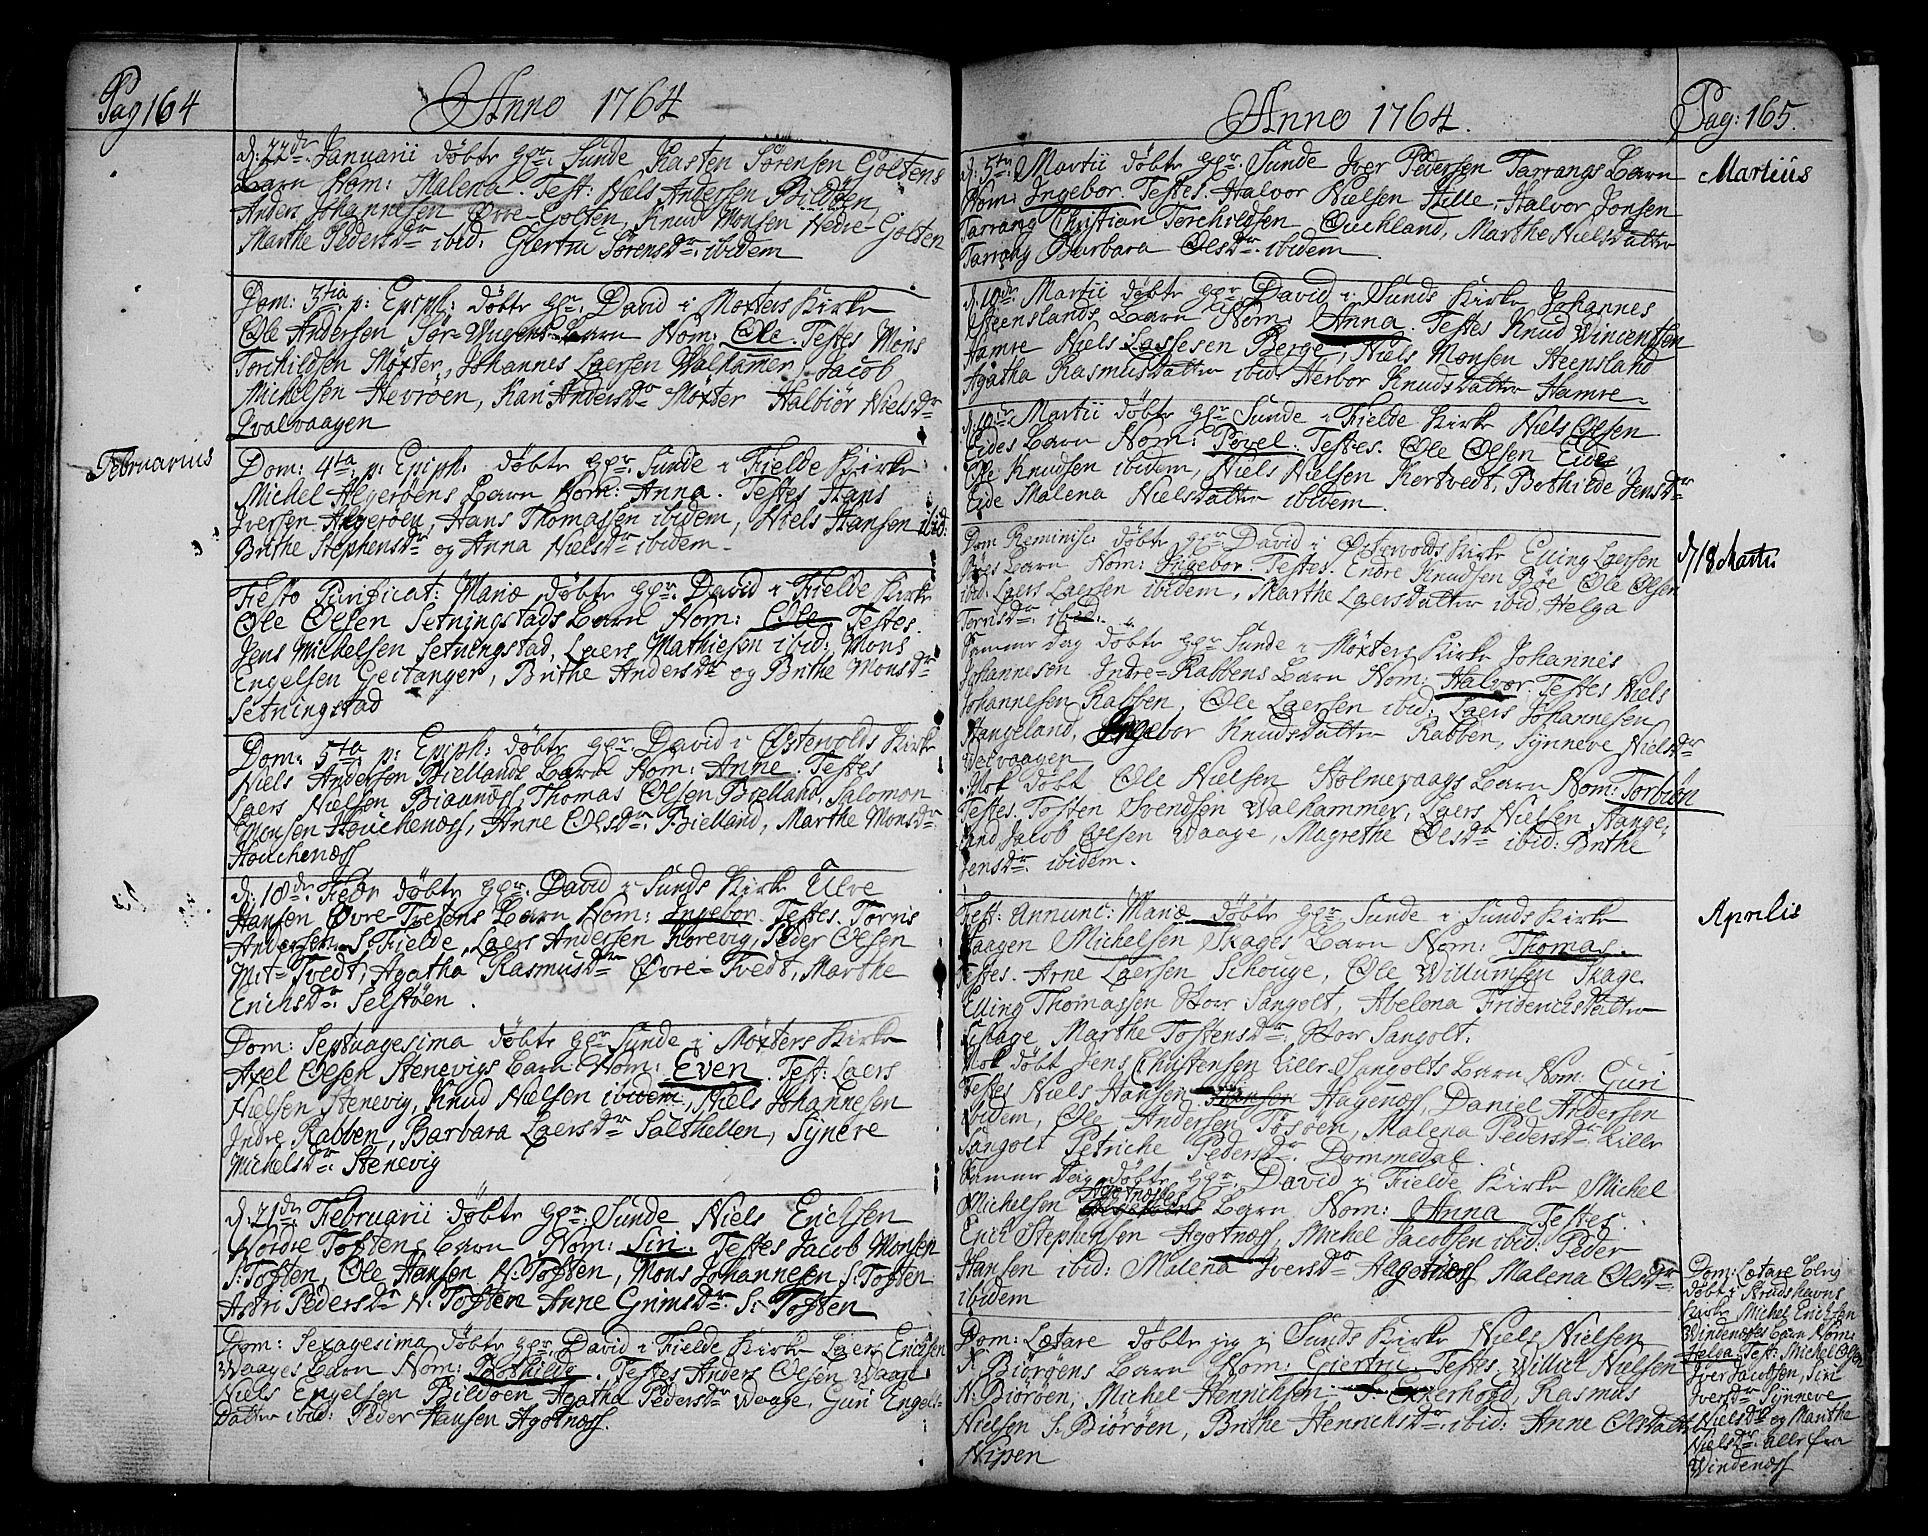 Pag 164
Anno 1764
d: 22de Januarii døbte Hr: Sunde Karsten Sørensen Goltens
Barn Nom: Malena. Test: Niels Andersen Bildøen,
Anders Johannesen Øvre-Golten, Knud Monsen Nedre-Golten
Marthe Pedersdr: ibid: Giertru Sørensdr: ibidem
Dom: 3tia p: Epiph: døbte Hr: David i Møsters Kirke
Ole Andersen Sør- Barn Nom: Ole. Testes Mons
Torchildsen Møster, Johannes Laersen Walhamer, Jacob
Michelsen Hevrøen, Kari Andersdr Møster Halbiør Nielsdr
Qvalvaagen
Februarius
Dom: 4ta p: Epiph: døbte Hr: Sunde i Fielde Kirke
Michel Algerøens Barn Nom: Anna. Testes Hans
Iversen Algerøen, Hans Thomassen ibidem, Niels Hansen ibid:
Brithe Stephensdr og Anna Nielsdr ibidem
Festo Purificat: Mariæ døbte Hr: David i Fielde Kirke
Ole Olsen Setningstads Barn Nom: Ole. Testes.
Jens Michelsen Setningstad, Laers Mathiesen ibid: Mons
Engelsen Geitanger, Brithe Andersdr og Brithe Monsdr
Setningstad
Dom: 5ta p: Epiph: døbte Hr: David i Østervolds Kirke
Niels Andersen Biellands Barn Nom: Anne. Testes
Laers Nielsen Biaanæss, Thomas Olsen Bielland, Salomon
Monsen Houchenæss, Anne Olsdr: Bielland, Marthe Monsdr
Houchenæss
d: 18de Febr døbte Hr: David i Sunds Kirke Ulve
Hansen Øvre-Tvetens Barn Nom: Ingebor. Testes. Tørris
Andersen S: Fielde, Laers Andersen Kørevig, Peder Olsen
Mit-Tvedt, Agatha Rasmusdr Øvre-Tvedt, Marthe
Erichsdr: Selstøen.
Dom: Septuagesima døbte Hr: Sunde i Møsters Kirke
Axel Olsen Stenevigs Barn Nom: Even. Test: Laers
Nielsen Stenevig, Knud Nielsen ibidem, Niels Johannesen
Indre Rabben, Barbara Laersdr Salthellen, Synere
Michelsdr: Stenevig
d: 21de Februarii døbte Hr: Sunde Niels Erichsen
Nordre Toften Barn Nom: Siri. Testes Jacob Monsen
S: Toften, Ole Hansen N: Toften, Mons Johannesen S: Toften
Astri Pedersdr N: Toften Anne Grimsdr: S: Toften
Dom: Sexagesima døbte Hr: David i Fielde Kirke Laers Erichsen
Waages Barn Nom: Bothilde. Testes Anders Olsen Waage
Niels Engelsen Bildøen Agatha Pedersdr Waage, Guri Engels-
datter ibid: Peder Hansen Agotnæss.
Anno 1764.
Pag: 165.
Martius
d: 5te Martii døbte Hr: Sunde Iver Pedersen Tarrangs Barn
Nom: Ingebor Testes. Halvor Nielsen Hille, Halvor Jonsen
Tarrang Christian Torchildsen Øuchland, Marthe Nielsdatter
Tarrang Barbara Olsdr: ibidem.
d: 10de Martii døbte Hr: David i Sunds Kirke Johannes
Steenslands Barn Nom: Anna. Testes Knud Wincentsen
Hamre Niels Lassesen Berge, Niels Monsen Steensland
Agatha Rasmusdatter ibid: Herbor Knudsdatter Hamre
d: 10de Martii døbte Hr: Sunde i Fielde Kirke Niels Olsen
Eides Barn Nom: Povel. Testes. Ole Olsen Eide
Ole Knudsen ibidem, Niels Nielsen Kortvedt, Bothilde Jensdr
Eide Malena Nielsdatter ibidem.
d 18 Martii
Dom Reminisc: døbte Hr: David i Østervolds Kirke Elling Laersen
Bøes Barn Nom: Ingebor. Testes. Endre Knudsen Bøe Ole Olsen
ibid: Laers Laersen ibidem, Marthe Laersdatter ibid, Helga
Tornsdr: ibid:
Samme dag døbte Hr: Sunde i Møsters Kirke Johannis
Johannesen Indre-Rabbens Barn Nom: Halvor. Testes Niels
Johannesen Rabben, Ole Laersen ibid: Laers Johannesen
Hangeland, Ingebor Knudsdatter Rabben, Synneve Nielsdr
Qvalvaagen
Nok døbt Ole Nielsen Holmevaags Barn Nom: Torbiøn
Testes. Tosten Svendsen Walhammer, Laers Nielsen Hange-
land, Jacob Olsen Waage, Magrethe Olsdr ibid: Brithe
Jensdr: ibidem.
Aprilis
Fest: Annunc: Mariæ døbte Hr: Sunde i Sunds Kirke
Haagen Michelsen Skages Barn Nom: Thomas.
Testes. Arne Laersen Schouge, Ole Willumsen Skage
Elling Thomassen Stor Sangolt, Abelona Friderichsdatter
Skage, Marthe Tostensdr: Stor Sangolt.
Nok døbt Jens Christensen Lille Sangolts Barn Nom: Guri
Testes Niels Hansen Hagenæss, Daniel Andersen
ibidem, Ole Andersen Tøsøen, Malena Pedersdr: Lille
Sangolt Petriche Pedersdr: Dommedal.
Samme Dag døbte Hr: David i Fielde Kirke Michel
Michelsen Agotnæsses Barn Nom: Anna Testes.
Erich Stephensen Agotnæss, Michel Jacobsen ibid: Peder
Hansen ibid: Malena Iversdr Algotnæss Malena Olsdr
ibidem
Dom: Lætare døbte jeg i Sunds Kirke Niels Nielsen
S: Biorøens Barn Nom: Giertrie. Testes. Willich Nielsen
N: Biorøen, Michel Henrichsen S: Eckerhofd, Rasmus
Nielsen S: Biorøen, Brithe Henrichsdr: ibid: Anne Olsdatter
Nipen
Dom: Lætare blev
døbt i Strudshavns
Kirke Michel Erichsen
Windenæses Barn Nom:
Helga. Test: Michel Olsen
Iver Jacobsen, Siri
Iversdr Synneve
Nielsdr og Marthe
Nielsdr: alle fra
Windenæss